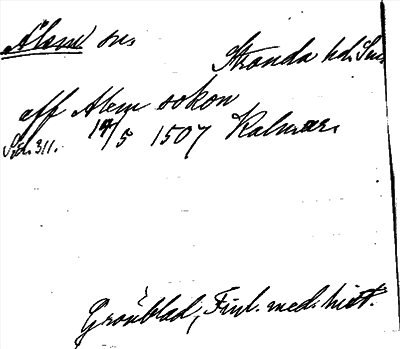 Ålem sn.
Stranda hd. Sm
aff Alem sokon
Sid. 311. 14/5 1507 Kalmar.
Grönblad, Finl. med. hist.